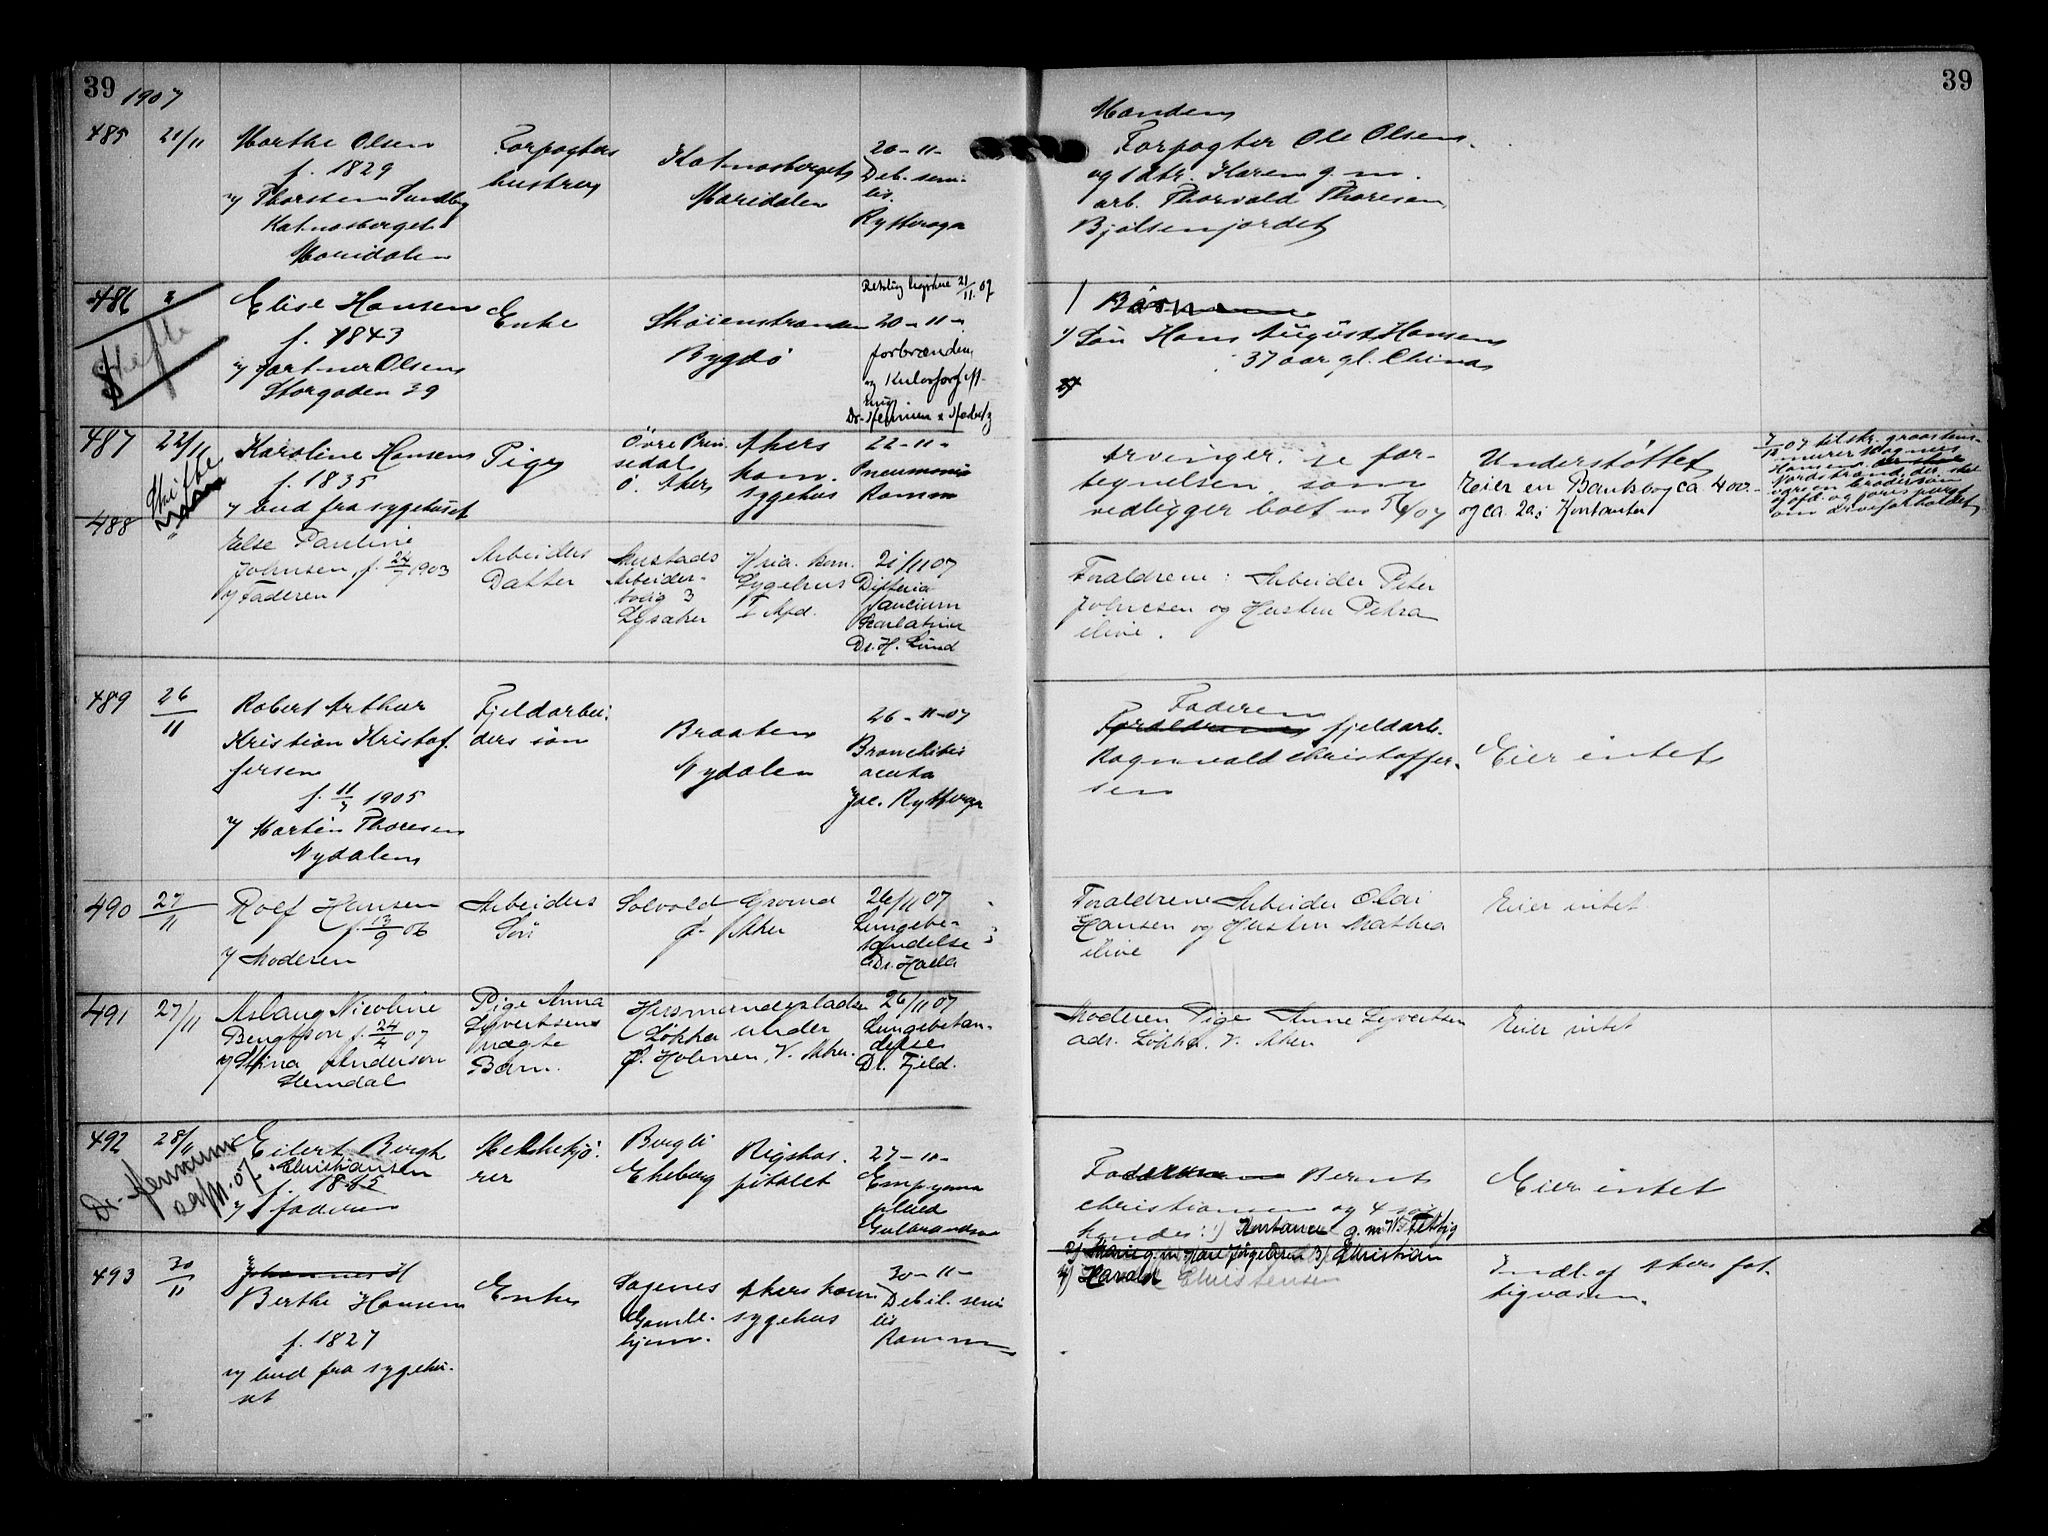 39
1907
485
21/11
Marthe Olsen
f. 1829
v/ Thorsten Sundby
Katnosberget
Maridalen
Forpagters
hustru
Katnosberget
Maridalen
20-11-
Deb. seni-
lis.
Rytteraga
486
Skifte
Elise Hansen
f. 1843
v/ Gartner Olsen
Storgaden 39
Enke
Skøienstranden
Bygdø
20-11-
forbrænding
og Kulosforgift-
ning
487
22/11
Skifte
Karoline Hansen
f. 1835
v/ bud fra sygehuset
Pige
Øvre Prin-
sedal
Ø. Aker
Akers
kom.
sygehus
22-11-
Pneumoni
Ramm
488
Else Pauline
Johnsen, f. 1903
v/ Faderen
Arbeiders
Datter
Mustads
Arbeider-
bolig 3
Lysaker
Kria. Kom.
Sygehus
I Afd.
21/11 07
Difteria
faucium
Scarlatina
Dr. H. Lund
489
26/11
Robert Arthur
Kristian Kristof-
fersen
f. 11/3 1905
v/ Martin Thoresen
Nydalen
Fjeldarbei-
ders søn
Braaten
Nydalen
26-11-07
Bronchitis
acuta
Joc. Rytteraga
490
27/11
Rolf Hansen
f. 13/9 06
v/ Moderen
Arbeiders
Søn
Solvold Grorud
Ø. Aker
26/11 07
Lungebe-
tændelse
Dr. Halle
491
27/11
Aslaug Nicoline
Bengtson f. 24/4 07
v/ Stina Anderson
Slemdal
Pige Anna
Syvertsens
uægte
Barn.
Husmandspladsen
Løkka under
Holmen, V. Aker.
26/11 07
Lungebetæn-
delse
Dr. Fjeld.
492
28/11
Eilert Bergh
Christiansen
f. 1885
v/ faderen
Melkekjø-
rer
Bergli
Ekeberg
Rigshos-
pitalet
27-11-
Empyema
Gulbrandsen
493
30/11
Johannes H
Berthe Hansen
f. 1827
v/ bud fra sygehu-
set
Enke
Sagenes
Gamle-
hjem.
Akers kom.
sygehus
30-11-
Debil. seni
lis
Ramm
39
Manden
Forpagter Ole Olsen.
og 1 dtr. Karen g. m.
arb. Thorvald Thoresen
Bjølsenjordet
Børnene
1) Søn Hans August Hansen
37 aar gl. China
2)
Arvinger, se for-
tegnelsen som
vedligger boet
Understøttet
Eier en Bankbog ca. 400.-
og ca. 20; Kontanter
Forældrene: Arbeider Peter
Johnsen og Hustru Petra
ilive.
Faderen
Forældrene fjeldarb.
Ragnvald Christoffer-
sen
Eier intet
Forældrene Arbeider Olai
Hansen og Hustru Mathea
ilive
Eier intet
Moderen Pige Anne Syvertsen
adr. Løkka. V. Aker
Eier intet
Bernt
Christiansen og 4 søs-
kende: 1)
3) Christian
4) Harald Christensen
Eier intet
Indl. af Akers fat-
tigvæsen.